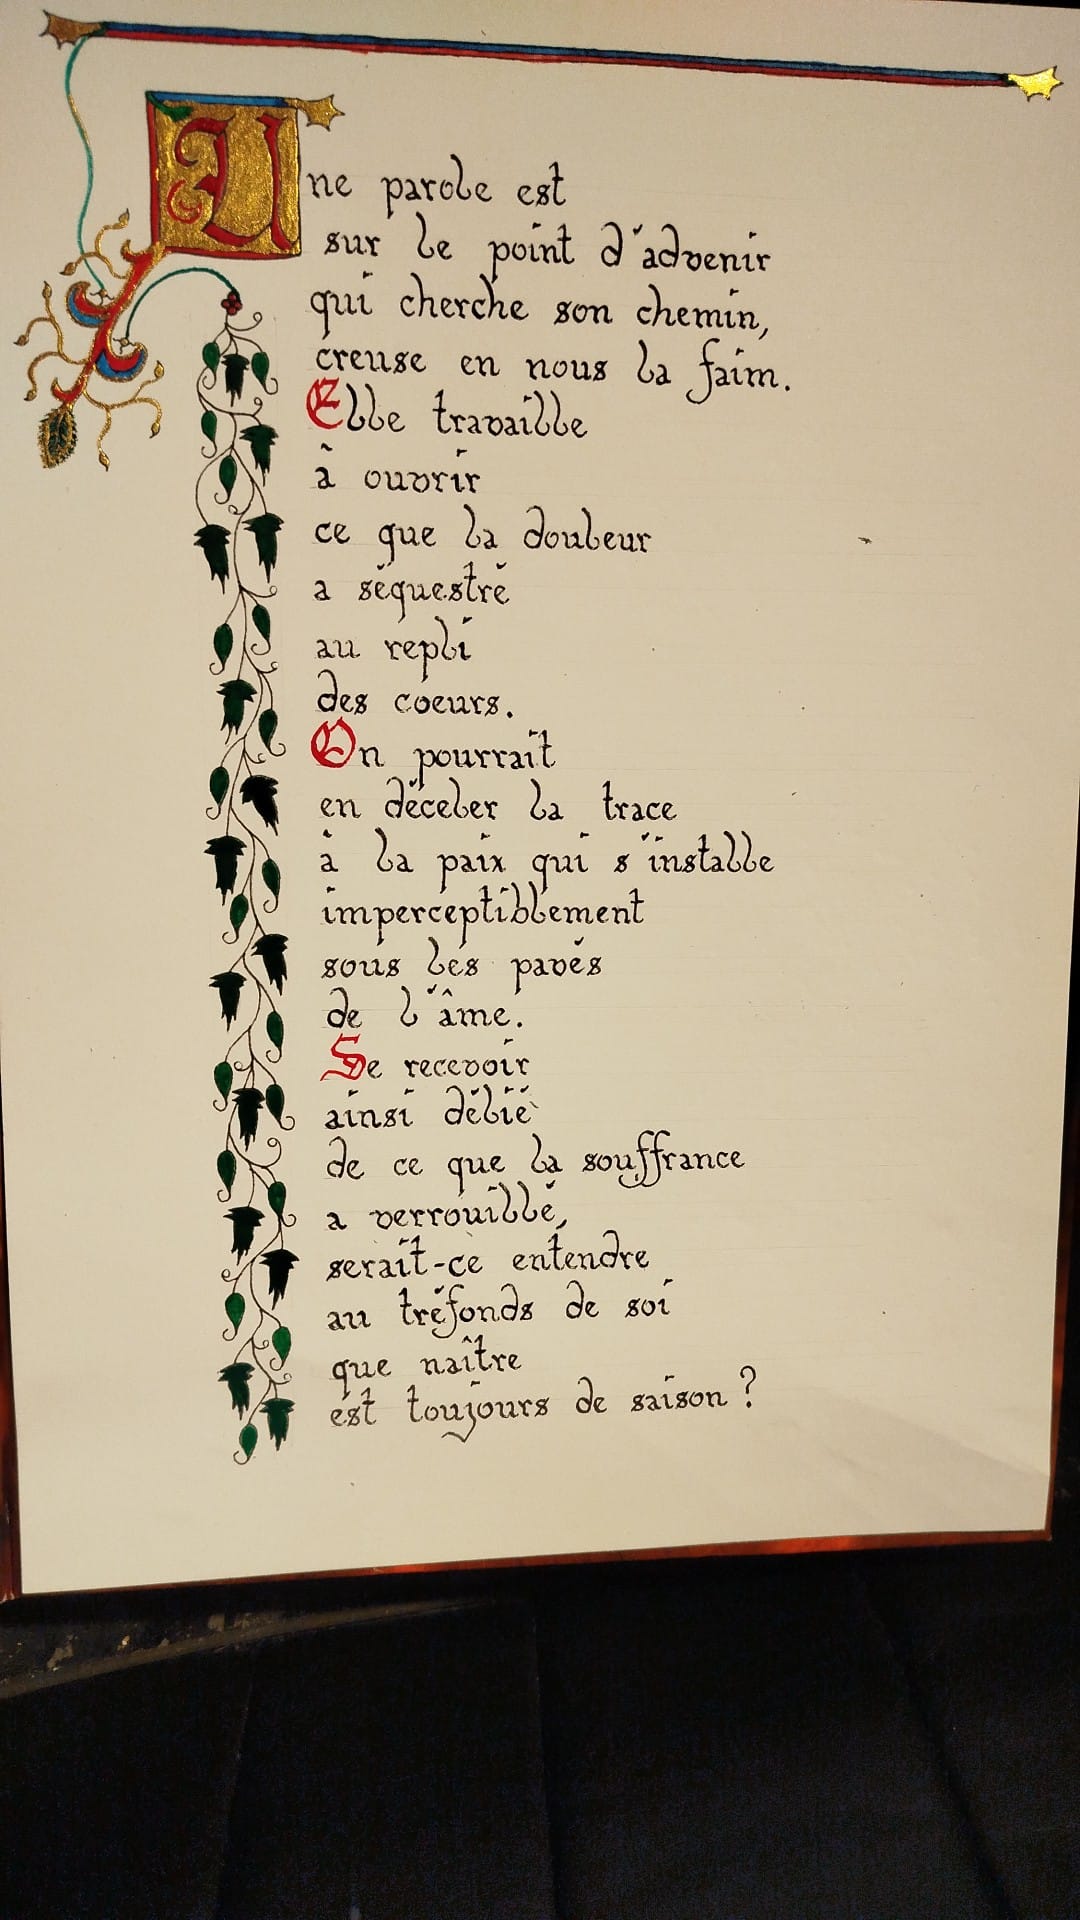 Une parole est
sur le point d'advenir
qui cherche son chemin,
creuse en nous la faim.
Elle travaille
à ouvrir
ce que la douleur
a séquestré
au repli
des coeurs.
On pourrait
en déceler la trace
à la paix qui s'installe
imperceptiblement
sous les pavés
de l'âme.
Se recevoir
ainsi délié
de ce que la souffrance
a verrouillé,
serait-ce entendre
au tréfonds de soi
que naître
est toujours de saison ?